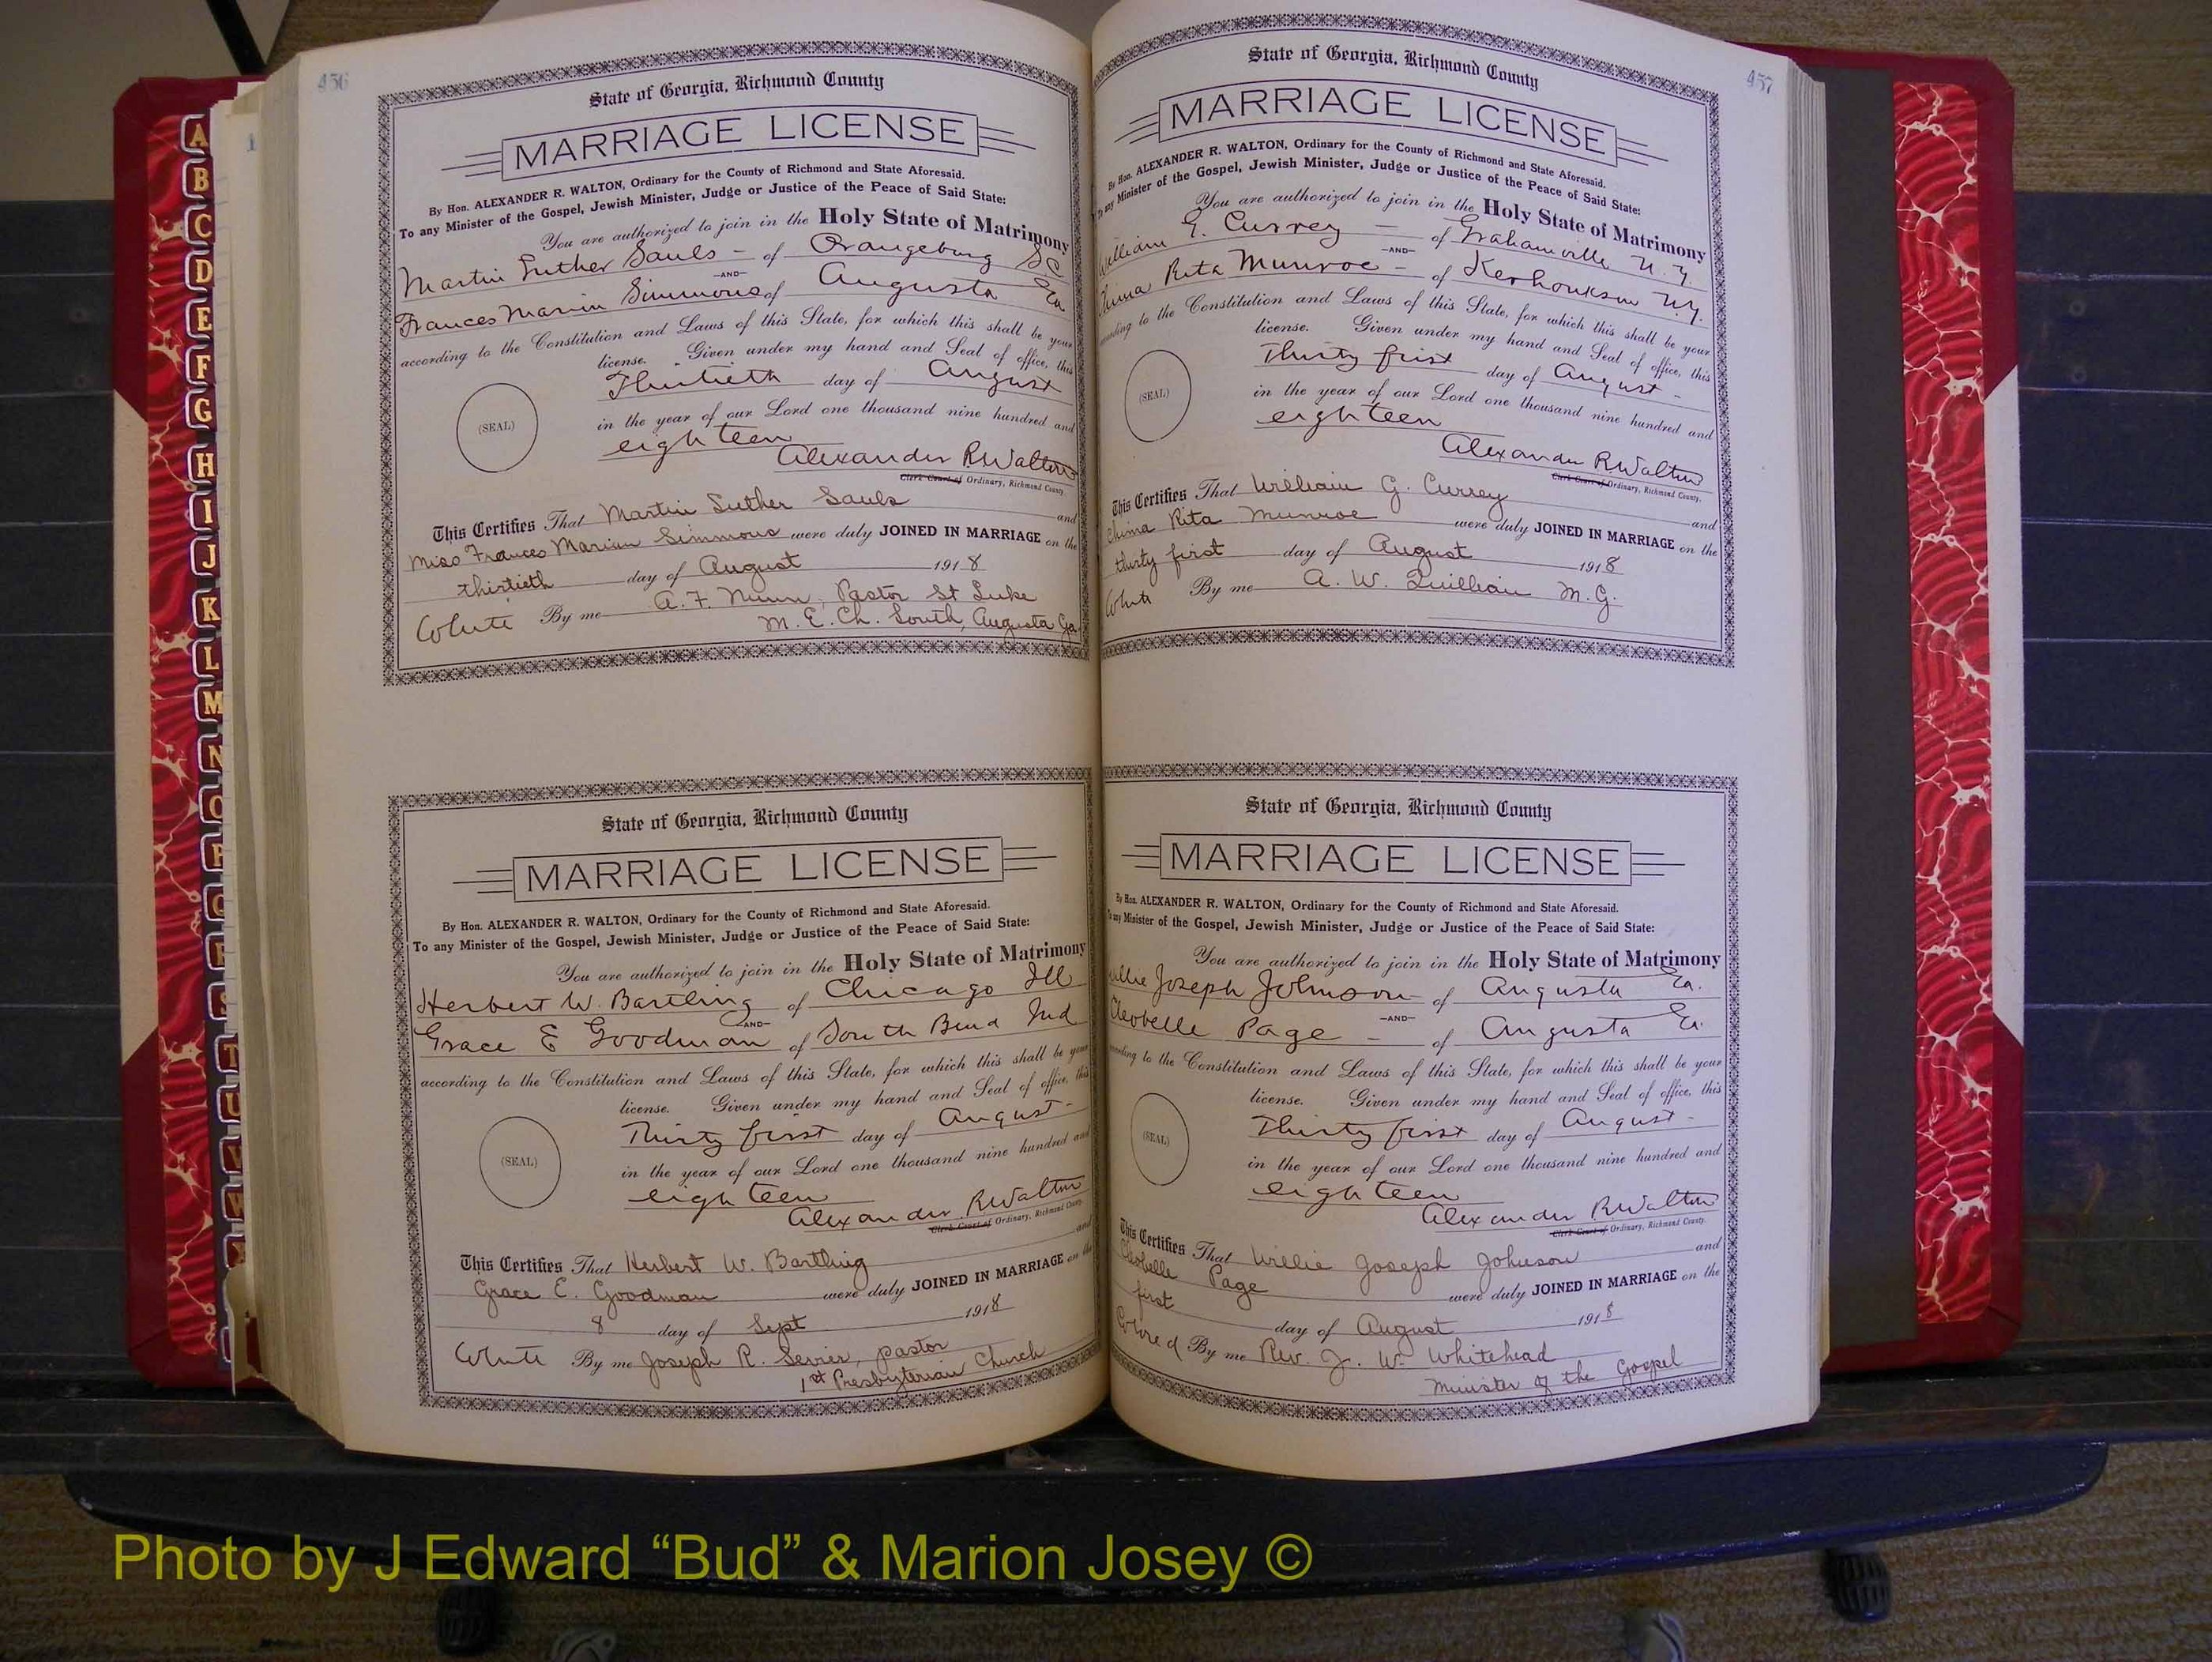 456
State of Georgia, Richmond County
MARRIAGE LICENSE
By Hon. ALEXANDER R. WALTON, Ordinary for the County of Richmond and State Aforesaid.
To any Minister of the Gospel, Jewish Minister, Judge or Justice of the Peace of Said State:
You are authorized to join in the Holy State of Matrimony
Martin Luther Sauls - of Orangeburg S.C
-AND-
Frances Marian Simmons of Augusta Ga
according to the Constitution and Laws of this State, for which this shall be your
license. Given under my hand and Seal of office, this
Thirtieth day of August
in the year of our Lord one thousand nine hundred and
(SEAL)
eighteen
Alexander R Walton
Clerk Court of Ordinary, Richmond County.
This Certifies That Martin Luther Sauls and
Miss Frances Marian Simmons were duly JOINED IN MARRIAGE on the
thirtieth day of August 1918
White By me A. F. Nunn, Pastor St Luke
M. E. Ch. South, Augusta Ga.
State of Georgia, Richmond County
MARRIAGE LICENSE
By Hon. ALEXANDER R. WALTON, Ordinary for the County of Richmond and State Aforesaid.
To any Minister of the Gospel, Jewish Minister, Judge or Justice of the Peace of Said State:
You are authorized to join in the Holy State of Matrimony
Herbert W. Bartling of Chicago Ill
-AND-
Grace E Goodman of South Bend Ind
according to the Constitution and Laws of this State, for which this shall be your
license. Given under my hand and Seal of office, this
Thirty first day of August -
(SEAL)
in the year of our Lord one thousand nine hundred and
eighteen
Alexander R Walton
Clerk Court of Ordinary, Richmond County
This Certifies That Herbert W. Bartling and
Grace E. Goodman were duly JOINED IN MARRIAGE on the
8 day of Sept 1918
White By me Joseph R. Sevier, pastor
1st Presbyterian Church
457
State of Georgia, Richmond County
MARRIAGE LICENSE
By Hon. ALEXANDER R. WALTON, Ordinary for the County of Richmond and State Aforesaid.
To any Minister of the Gospel, Jewish Minister, Judge or Justice of the Peace of Said State:
You are authorized to join in the Holy State of Matrimony
William G. Currey - of Grahamville N.Y.
-AND-
Rita Munroe - of Kerhonkson N.Y.
according to the Constitution and Laws of this State, for which this shall be your
license. Given under my hand and Seal of office, this
Thirty first day of August -
(SEAL)
in the year of our Lord one thousand nine hundred and
eighteen
Alexander R Walton
Clerk Court of Ordinary, Richmond County.
This Certifies That William G. Currey and
Rita Munroe were duly JOINED IN MARRIAGE on the
thirty first day of August 1918
White By me A. W. Quillian M.G.
State of Georgia, Richmond County
MARRIAGE LICENSE
By Hon. ALEXANDER R. WALTON, Ordinary for the County of Richmond and State Aforesaid.
To any Minister of the Gospel, Jewish Minister, Judge or Justice of the Peace of Said State:
You are authorized to join in the Holy State of Matrimony
Willie Joseph Johnson of Augusta Ga.
-AND-
Cleobelle Page - of Augusta Ga.
according to the Constitution and Laws of this State, for which this shall be your
license. Given under my hand and Seal of office, this
Thirty first day of August -
(SEAL)
in the year of our Lord one thousand nine hundred and
eighteen
Alexander R Walton
Clerk Court of Ordinary, Richmond County.
This Certifies That Willie Joseph Johnson and
Cleobelle Page were duly JOINED IN MARRIAGE on the
first day of August 1918
Colored By me Rev. J. W. Whitehead
Minister of the Gospel
A
B
C
D
E
F
G
H
I
J
K
L
M
N
O
P
Q
R
S
T
U
V
W
Photo by J Edward “Bud” & Marion Josey ©